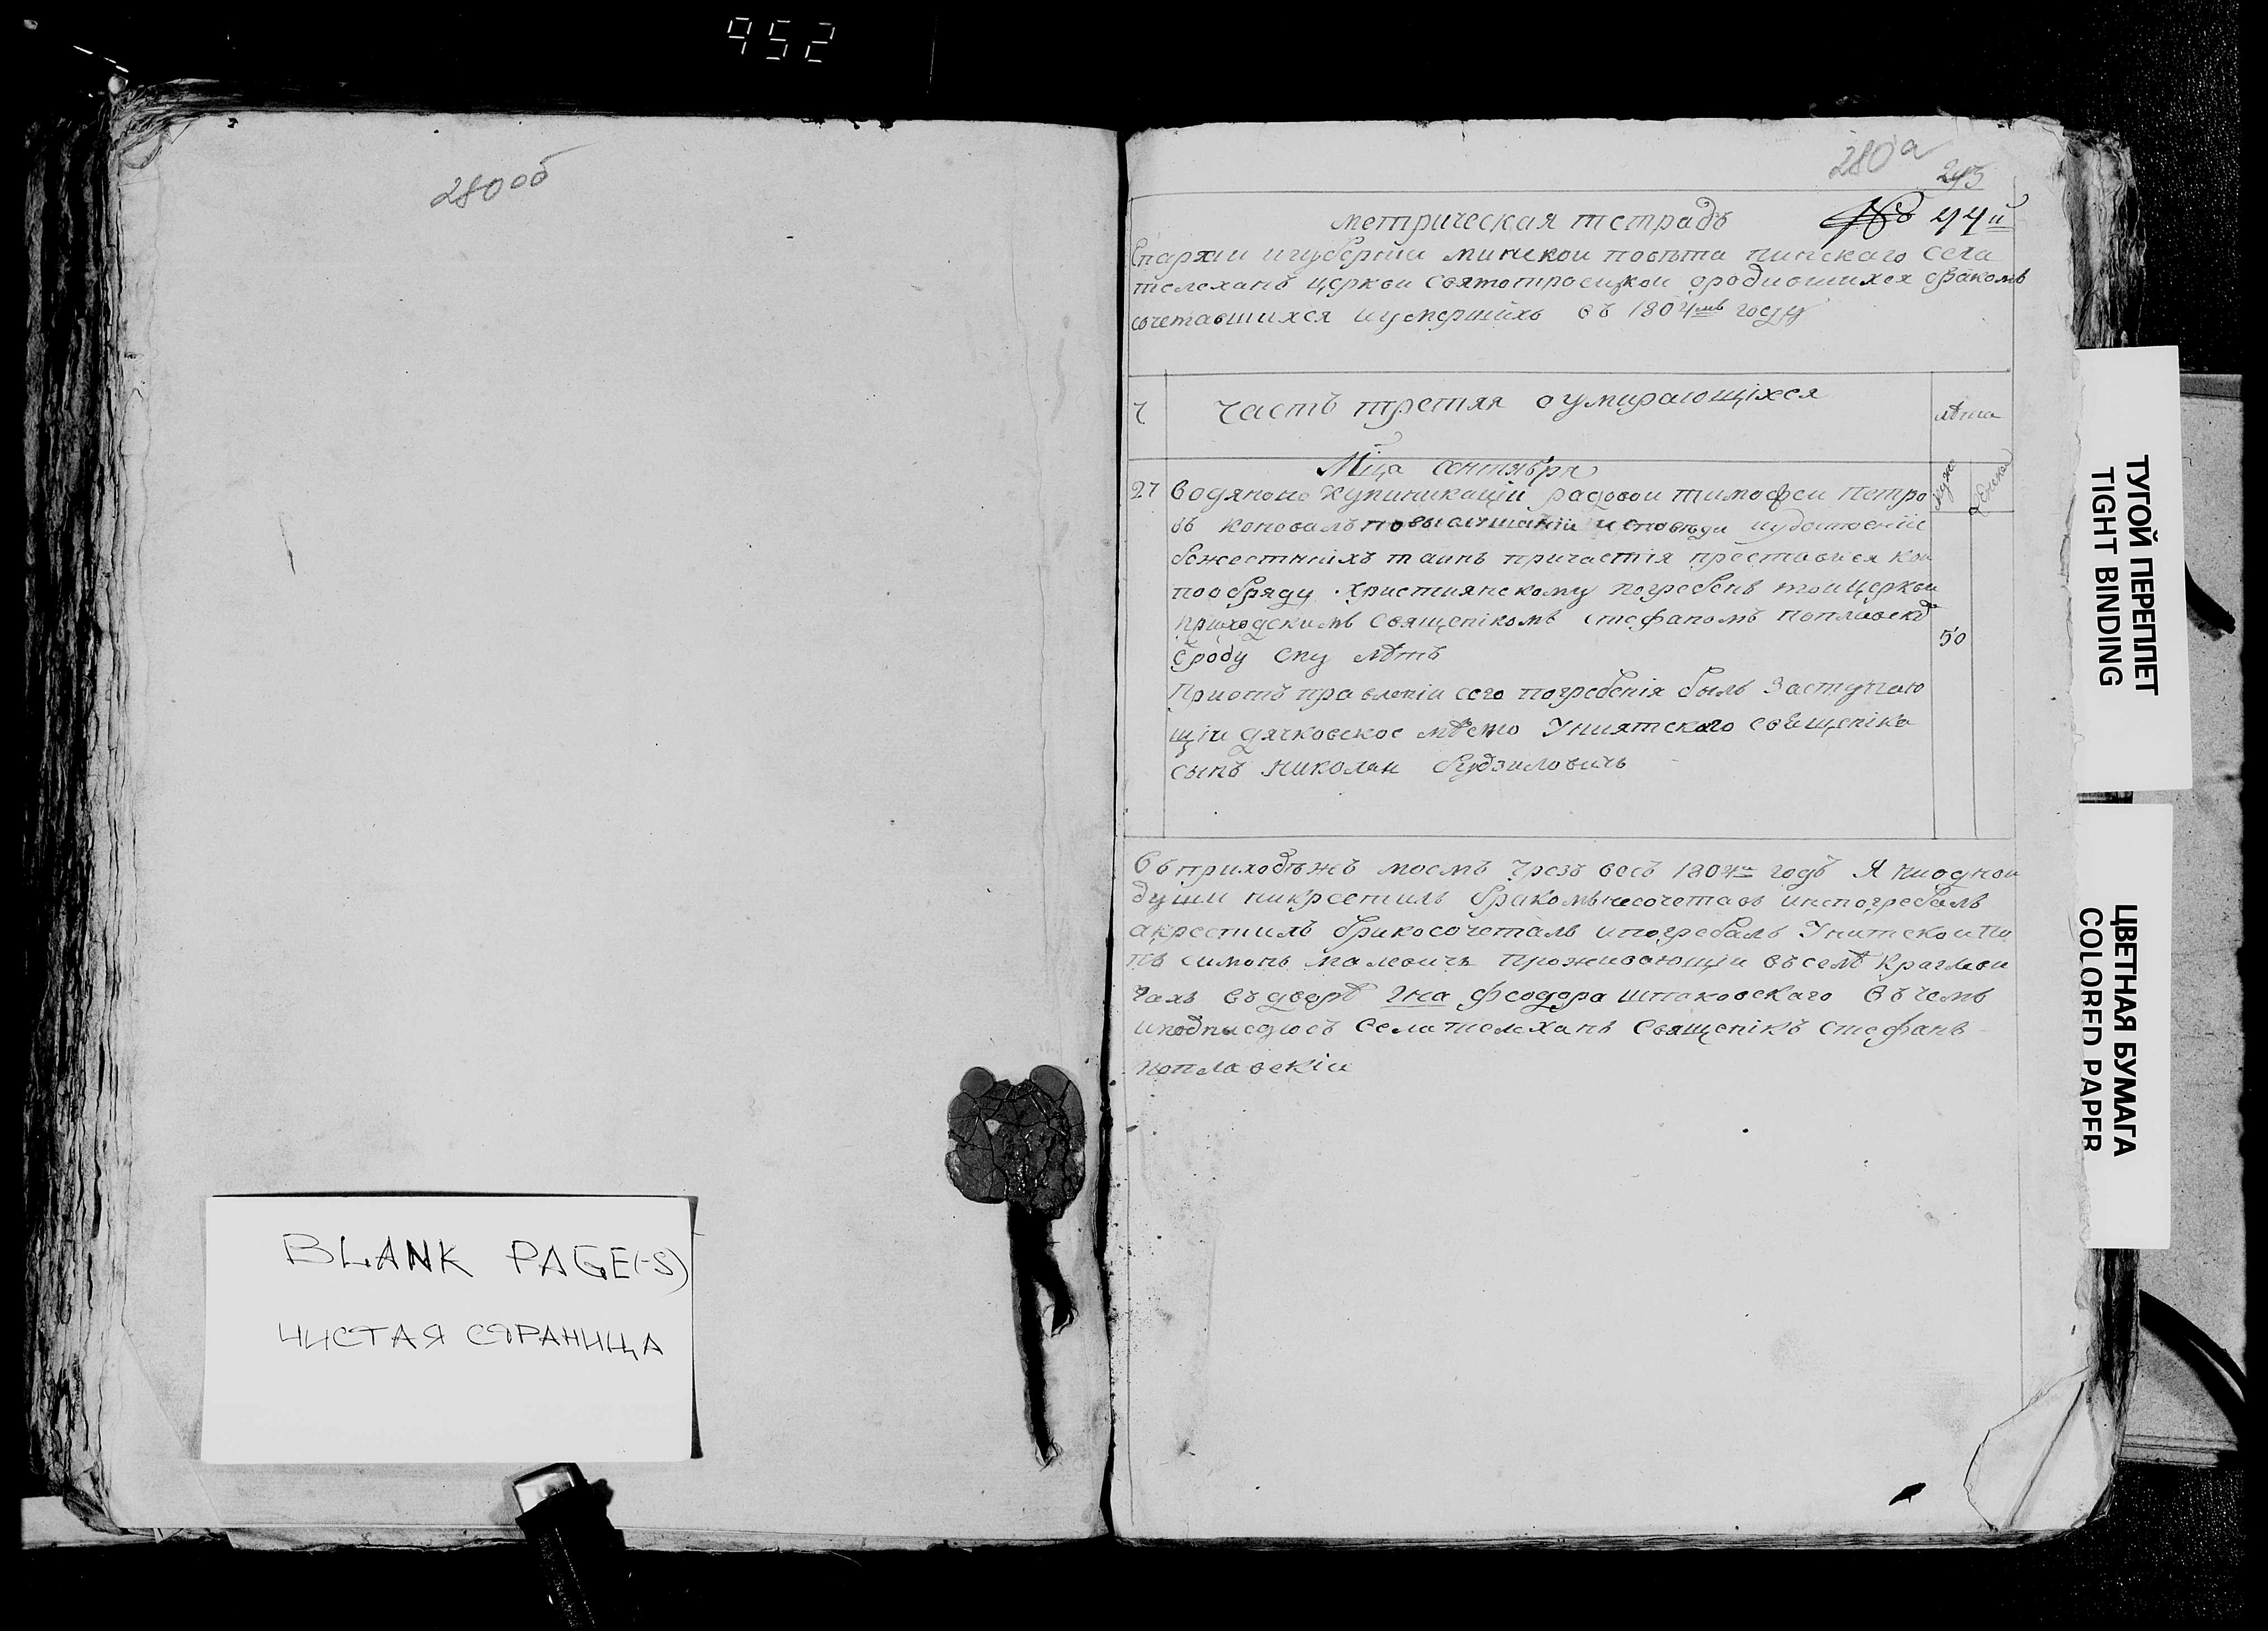 952
280об
BLANK PAGE(-S)
ЧИСТАЯ СТРАНИЦА
280а
метрическая тетрадъ 44й
Епархіи игуберніи минской повѣта пинскаго села
телеханъ церкви святотроецкои ородившихся бракомъ
сочетавшихся иумершихъ въ 1804мъ году
Часть третяя оумирающіхся
лѣта
Мца сентября
27 водяной Кумуникаціи рядовои тимофеи Петро
въ коновалъ повыслушаніи исповѣди иудостоеніи
божественихъ таинъ причастія преставися кои
пообряду Християнскому погребенъ тои церкви
приходскимъ священікомъ стефаномъ поплавскъ
ѿроду ему лѣтъ
50
Приотъправленіи сего погребенія былъ Заступаю
щіи дячковское мѣсто Униятского свещеніка
сынъ николаи Будзиловичь
Въ приходѣжъ моемъ Чрезъ весь 1804й годъ Я ниоднои
души никрестилъ бракомънесочеталъ инепогребалъ
акрестилъ бракосочеталъ ипогребалъ Унитскои По
пъ симонъ малевичь Проживающіи въселѣ Краглеви
чахъ въдворѣ Гна Феодора шпаковскаго Въчемъ
иподписуюсъ села телеханъ Священікъ стефанъ
поплавскіи
ТУГОЙ ПЕРЕПЛЕТ
TIGHT BINDING
ЦВЕТНАЯ БУМАГА
COLORED PAPER